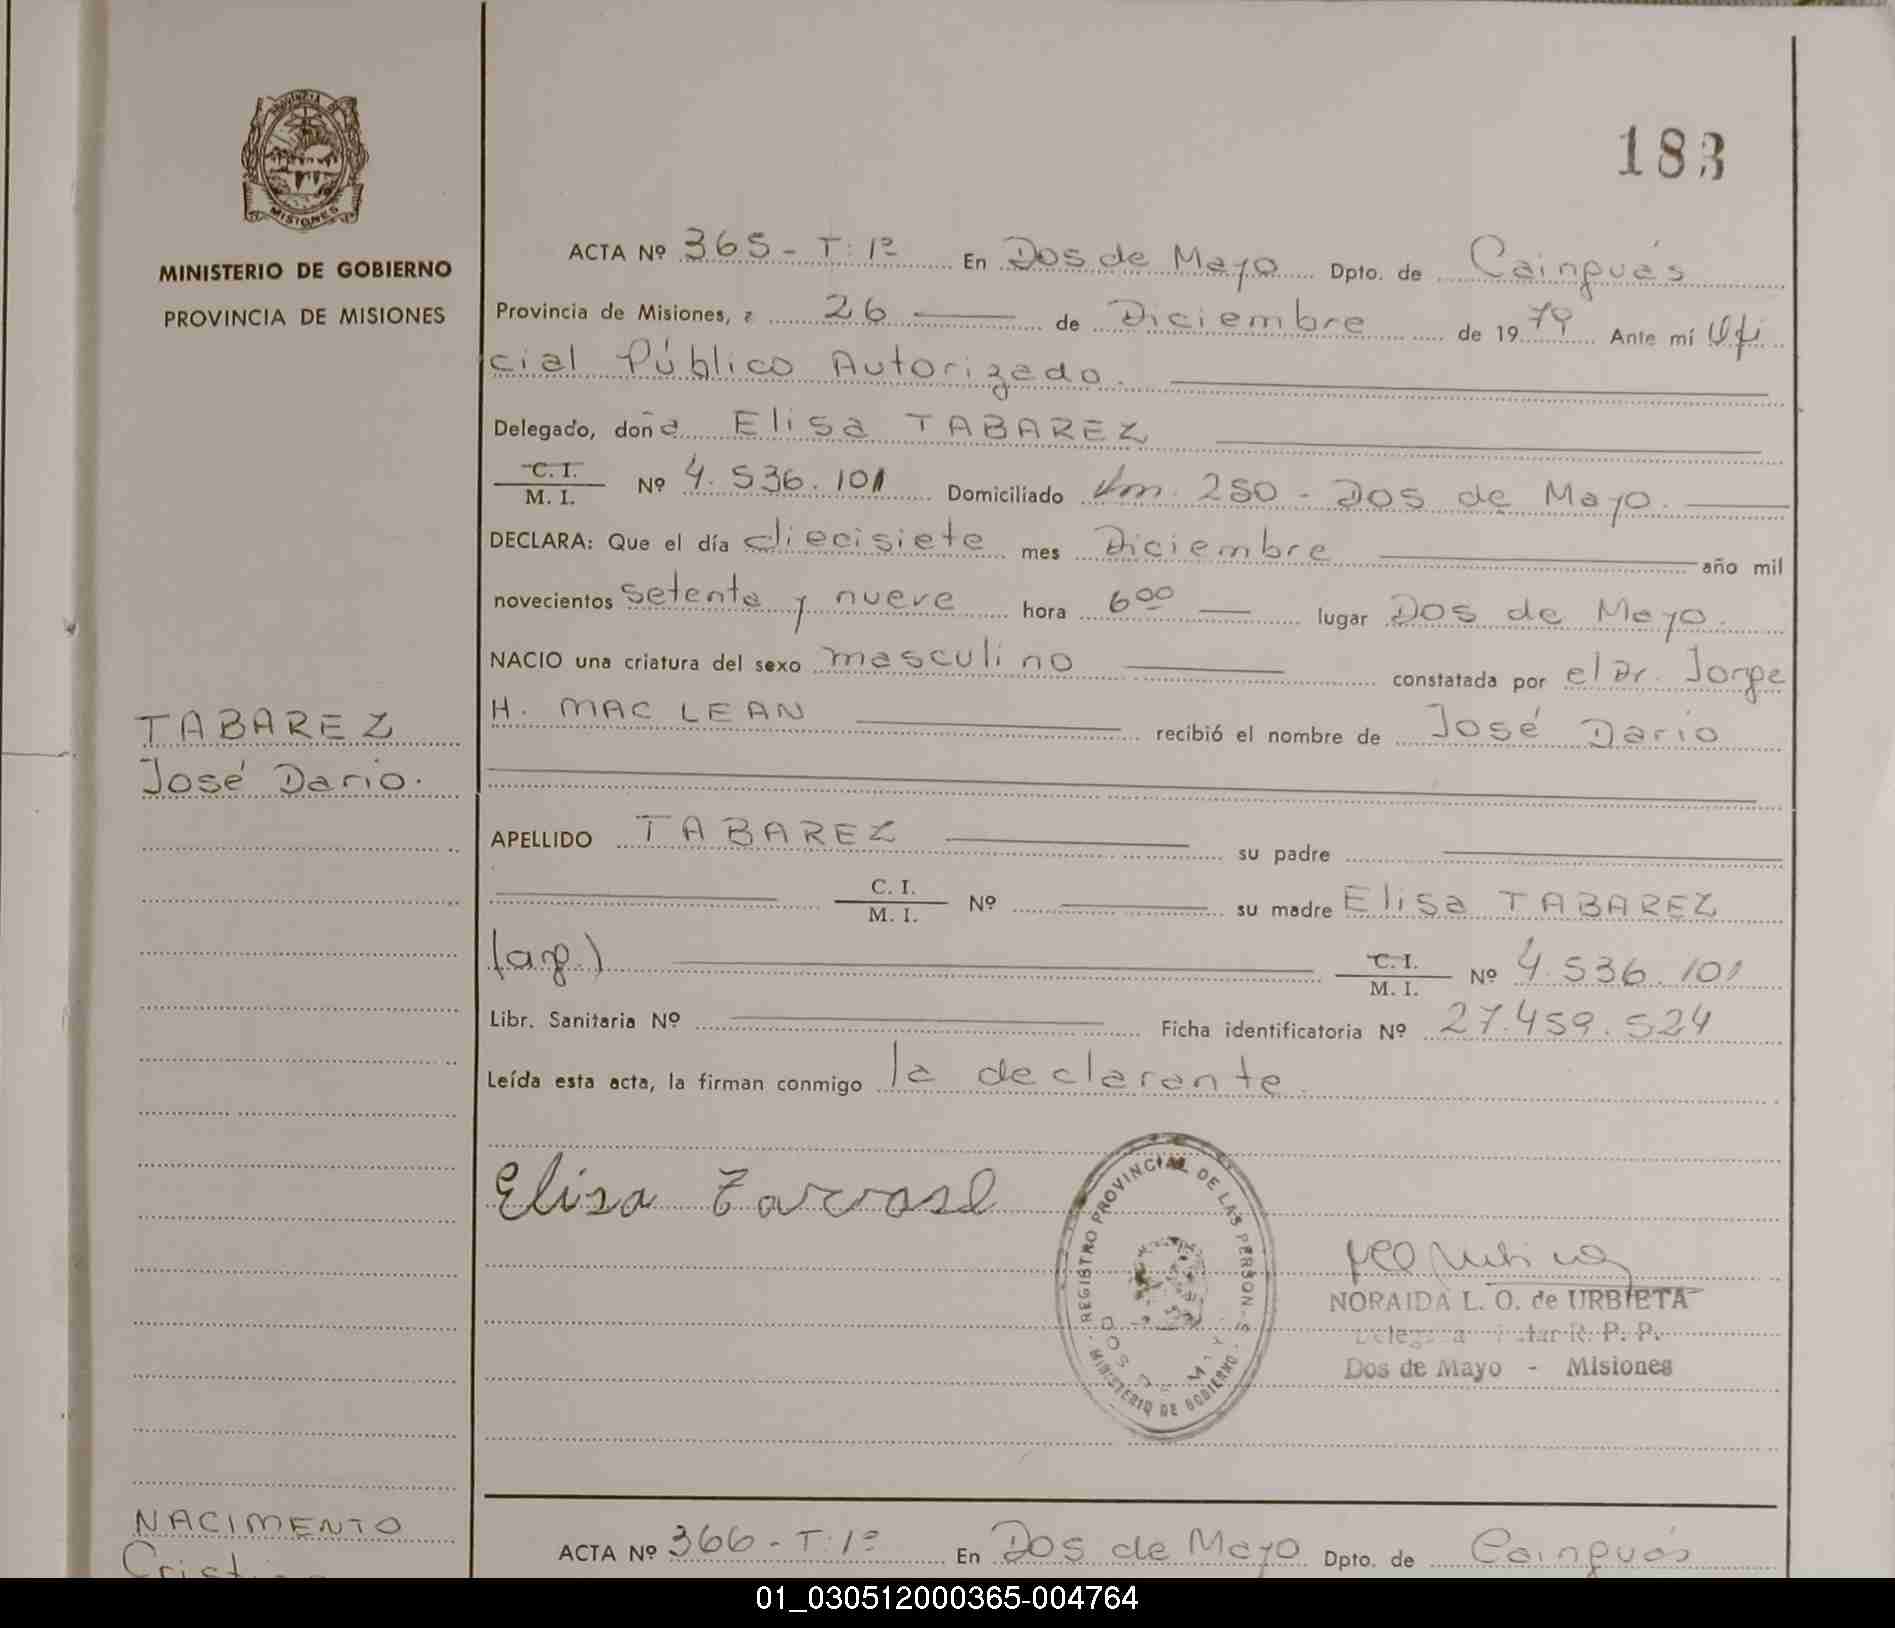 PROVINCIA DE
MISIONES
MINISTERIO DE GOBIERNO
PROVINCIA DE MISIONES
183
ACTA Nº 365 - T: 1º En Dos de Mayo Dpto. de Cainguás
Provincia de Misiones, a 26 de Diciembre de 1979 Ante mí Ofi
cial Público Autorizado.
Delegado, doña Elisa TABAREZ
C. I.
M. I. Nº 4.536.101 Domiciliado Km. 250 - Dos de Mayo.
DECLARA: Que el día diecisiete mes Diciembre año mil
novecientos setenta y nueve hora 600 lugar Dos de Mayo.
NACIO una criatura del sexo masculino constatada por el Dr. Jorge
H. MAC LEAN recibió el nombre de José Dario
TABAREZ
José Dario.
APELLIDO TABAREZ su padre
C. I.
M. I. Nº su madre Elisa TABAREZ
(ag.) C. I.
M. I. Nº 4.536.101
Libr. Sanitaria Nº Ficha identificatoria Nº 27.459.524
Leída esta acta, la firman conmigo la declarante.
Elisa
REGISTRO PROVINCIAL DE LAS PERSONAS
MINISTERIO DE GOBIERNO
DOS DE MAYO
NORAIDA L. O. de URBIETA
R. P. P.
Dos de Mayo - Misiones
NACIMENTO
ACTA Nº 366 - T: 1º En Dos de Mayo Dpto. de Cainguás
01_030512000365-004764